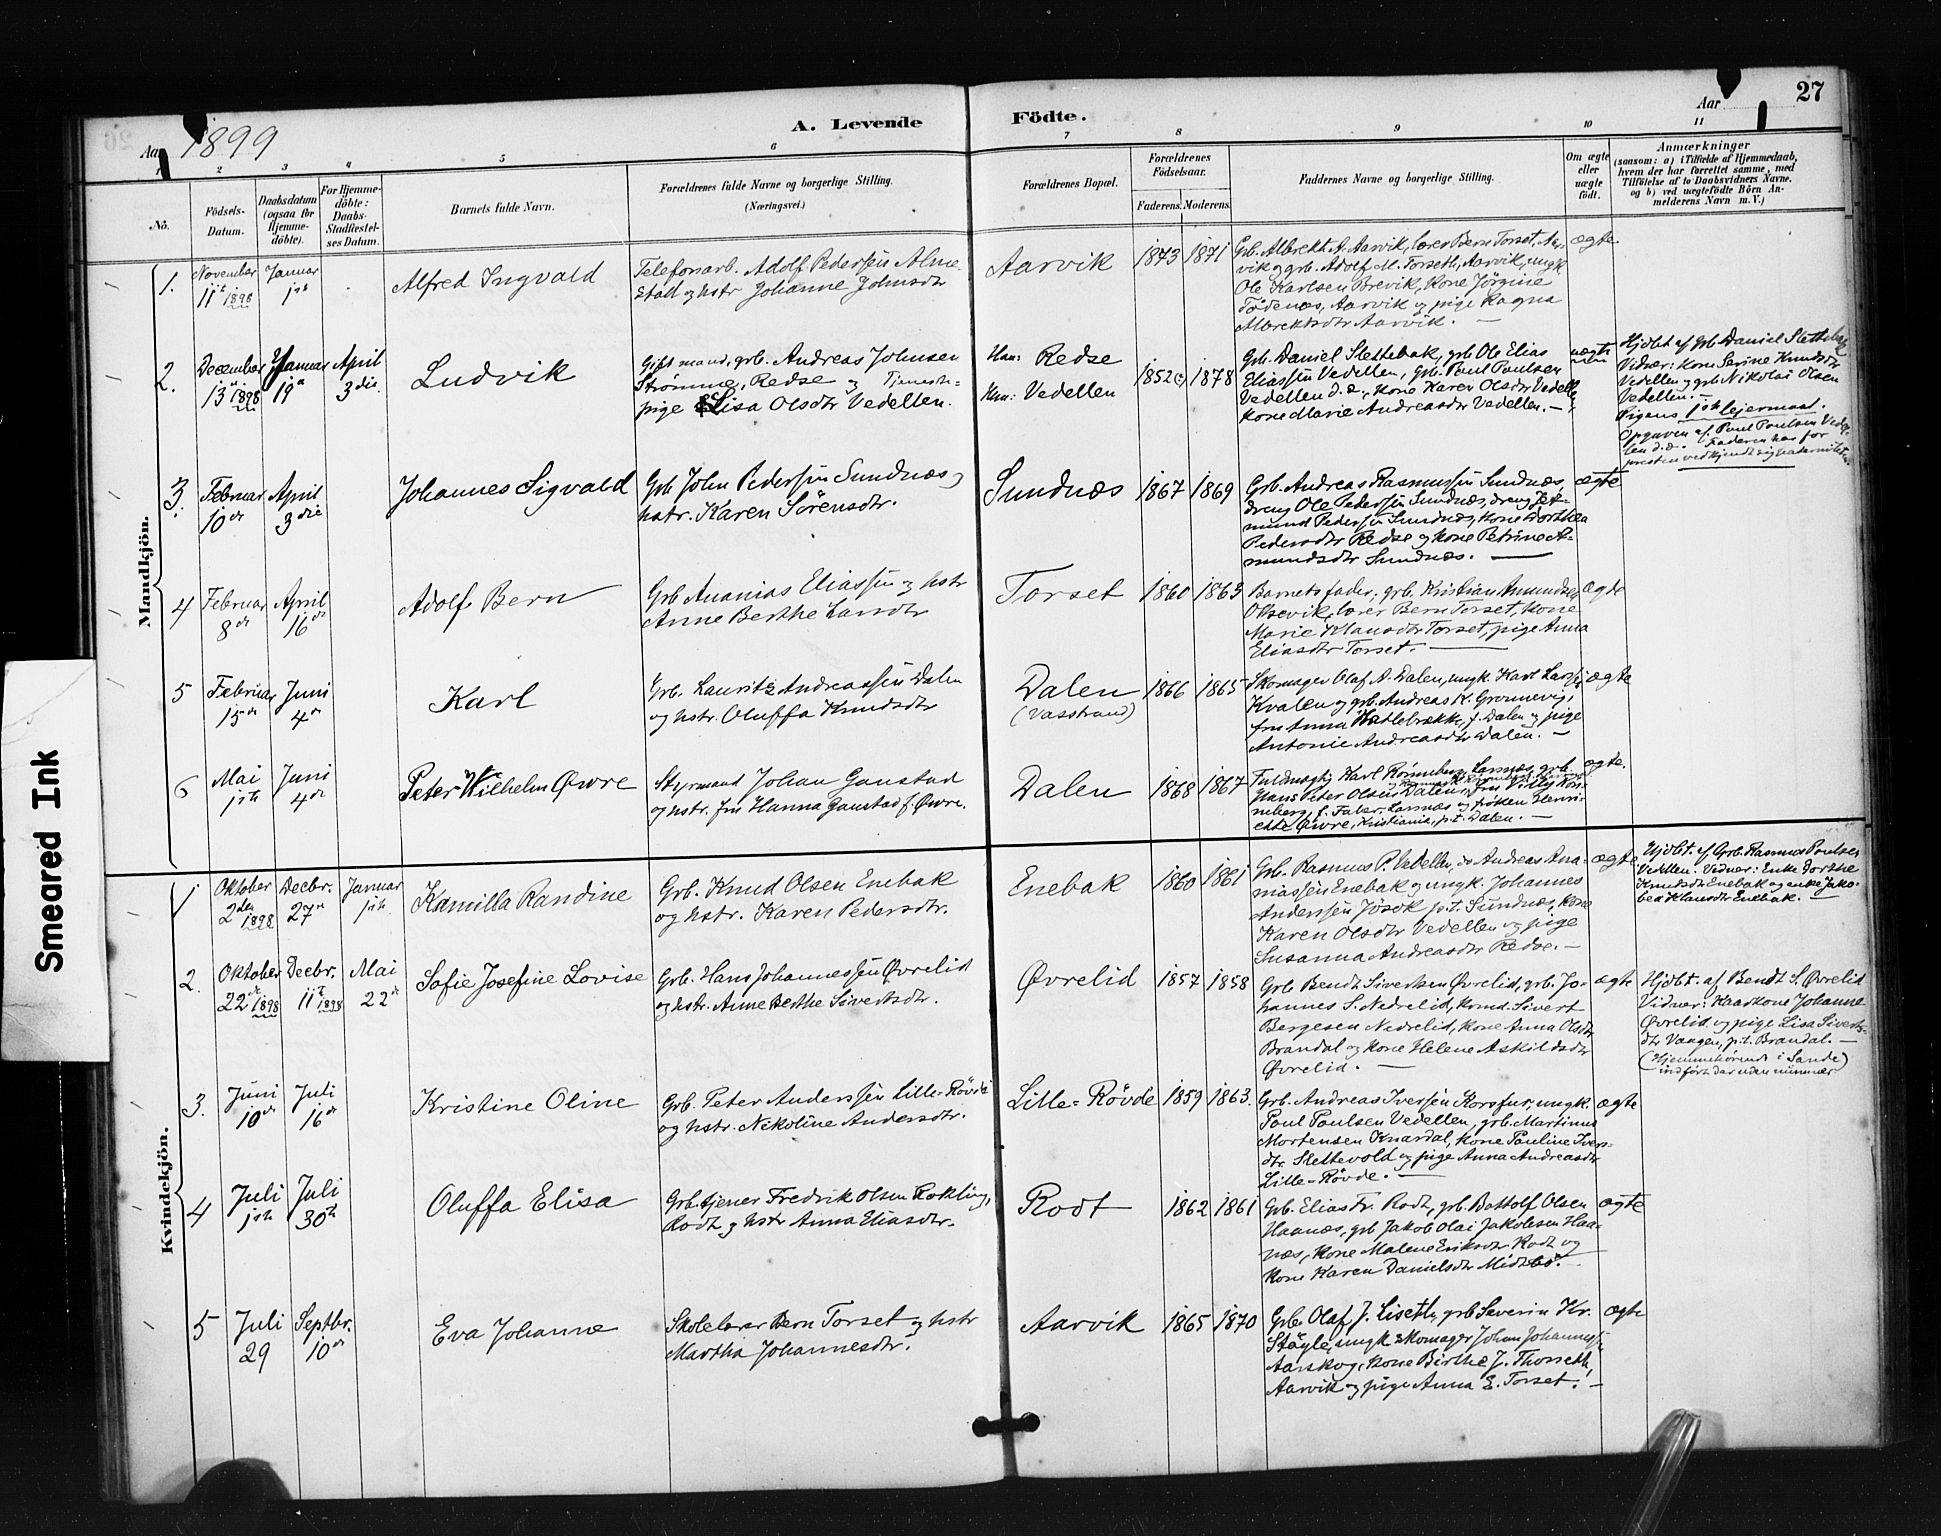 Aar 1899
A. Levende
Födte.
Aar
27
1
2
3
4
5
6
7
8
9
10
11
No.
Födsels-
Datum.
Daabsdatum
(ogsaa för
Hjemme-
döbte).
For Hjemme-
döbte:
Daabs-
Stadfæstel-
ses Datum.
Barnets fulde Navn.
Forældrenes fulde Navne og borgerlige Stilling.
(Næringsvei.)
Forældrenes Bopæl.
Forældrenes
Födselsaar.
Faderens. Moderens.
Faddernes Navne og borgerlige Stilling.
Om ægte
eller
uægte
födt.
Anmærkninger
(saasom: a) i Tilfælde af Hjemmedaab,
hvem der har forrettet samme, med
Tilföielse af to Daabsvidners Navne.
og b) ved uægtefödte Börn An-
melderens Navn m. V.)
Mandkjön.
1.
November
11te 1898
Januar
1ste
Alfred Ingvald
Telefonarb. Adolf Pederssen Alme-
stad og hstr Johanne Johnsdtr
Aarvik
1843
1871
Grb. Albrekt A. Aarvik, lærer Bern Torset, Aar-
vik og grb. Adolf M. Torseth, Aarvik, ungk.
Ole Karlsen Brevik, Kone Jørgine
Tödenæs, Aarvik og pige Ragna
Albrektsdtr Aarvik. —
ægte
2.
December
13de 1898
Januar
19de
April
3die
Ludvik
Gift mand, grb. Andreas Johnsen
Strømme, Redse og Tjeneste-
pige Elisa Olsdtr Vedellen.
Han: Redse
Hun: Vedellen
1852(?)
1878
Grb. Daniel Slettebak, grb Ole Elias
Eliassen Vedellen, grb. Paul Paulsen
Vedellen d.æ., Kone Karen Olsdtr Vedellen,
Kone Marie Andreasdtr Vedellen. —
uægte
Hjdbt af grb Daniel Slettebak
Vidner: Kone Serine Knudsdtr
Vedellen og grb Nikolai Olsen
Vedellen. —
Pigens 1ste lejermaal.
Opgaven af Paul Paulsen Vedel-
len d.æ. Faderen har for
presten vedkjendt sig paterniteten
3.
Februar
10de
April
3die
Johannes Sigvald
Grb John Pederssen Sundnæs og
hstr. Karen Sörensdtr.
Sundnæs
1867
1869
Grb. Andreas Rasmussen Sundnæs,
dreng Ole Pederssen Sundnæs, dreng
Pederssen Sundnæs, Kone Dorthea
Pedersdtr Redse og Kone Petrine A-
mundsdtr Sundnæs. —
ægte
4
Februar
8de
April
16de
Adolf Bern
Grb Ananias Eliassen og hstr
Anne Berthe Larsdtr
Torset
1860
1863
Barnets fader, grb. Kristian Amundsen
Oksevik, lærer Bern Torset, Kone
Marie Klausdtr Torset, pige Anna
Eliasdtr Torset. —
ægte
5
Februar
15de
Juni
4de
Karl
Grb. Lauritz Andreassen Dalen
og hstr. Oluffa Knudsdtr
Dalen
(Vasstrand)
1866
1865
Skomager Olaf A. Dalen, ungk. Karl
Kvalen og grb. Andreas K. Grønnevig,
fru Anna f. Dalen og pige
Antonie Andreasdtr Dalen. —
ægte
6
Mai
1ste
Juni
4de
Peter Wilhelm Øwre
Styrmand Johan Ganstad
og hstr. fru Hanna Ganstad f. Øwre.
Dalen
1868
1867
Fuldmægtig Karl Rønneberg, Larsnæs, grb.
Hans Peter Olsen Dalen, fru Villy Røn-
neberg, f. Faber, Larsnæs og frøken Henri-
ette Øwre, Kristiania, p.t. Dalen. —
ægte.
Kvindekjön.
1
Oktober
2den 1898
Decbr.
27de
Januar
1ste
Kamilla Randine
Grb. Knud Olsen Enebak
og hstr. Karen Pedersdtr.
Enebak
1860
1861
Grb. Rasmus P. Vedellen, do Andreas Ana-
niassen Enebak og ungk. Johannes
Anderssen Jøsok p.t. Sundnæs, Kone
Karen Olsdtr Vedellen og pige
Susanna Andreasdtr Redse. —
ægte
Hjdbt. af Grb. Rasmus Paulsen
Vedellen. Vidner: Enke Dorthe
Knudsdtr Enebak og enke Jako-
bea Klausdtr Enebak. —
2.
Oktober
22de 1898
Decbr.
11te 1898
Mai
22de
Sofie Josefine Lovise
Grb. Hans Johannessen Øvrelid
og hstr. Anne Berthe Sivertsdtr.
Øvrelid
1857
1858
Grb Bendt Sivertsen Øvrelid, grb. Jo-
hannes S. Nedrelid, kornd. Sivert
Bergesen Nedrelid, Kone Anna Olsdtr
Brandal og Kone Helene Askildsdtr
Øvrelid. —
ægte
Hjdbt. af Bendt S. Øvrelid
Vidner: Kaarkone Johanne
Øvrelid og pige Lisa Siverts-
dtr Vangen, p.t. Brandal. —
(Hjemmehørende i Sande)
indført der uden nummer
3.
Juni
10de
Juli
16de
Kristine Oline
Grb. Peter Anderssen Lille-Røvde
og hstr. Nikoline Andersdtr.
Lille-Røvde
1859
1863.
Grb. Andreas Iverssen Korsfur, ungk.
Paul Paulsen Vedellen, grb. Martinus
Mortensen Knardal, Kone Pauline Ivers-
dtr. Slettevold og pige Anna Andreasdtr
Lille-Røvde. —
ægte
4
Juli
1ste
Juli
30te
Oluffa Elisa
Grb. tjener Fredrik Olsen Rokling,
Rodt og hstr Anna Eliasdtr.
Rodt
1862
1861
Grb. Elias Fr. Rodt, grb. Bottolf Olsen
Haanæs, grb Jakob Olai Jakobsen Haa-
næs, Kone Malene Eriksdtr Rodt og
Kone Karen Danielsdtr Midtbö.
ægte
5
Juli
29
Septbr.
10de
Eva Johanne
Skolelærer Bern Torset og hstr
Martha Johannesdtr.
Aarvik
1865
1870
Grb. Olaf J. Liseth, grb Severin Kr.
Støyle, ungk skomager Johan Johannessen
Aarskog, Kone Birthe J. Thorseth,
Aarvik og pige Anna E. Torset. —
ægte
Smeared Ink